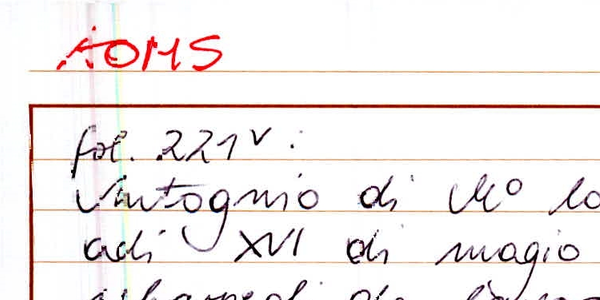 AOMS
fol. 221v:
Antognio di Mo
adi XVI di magio